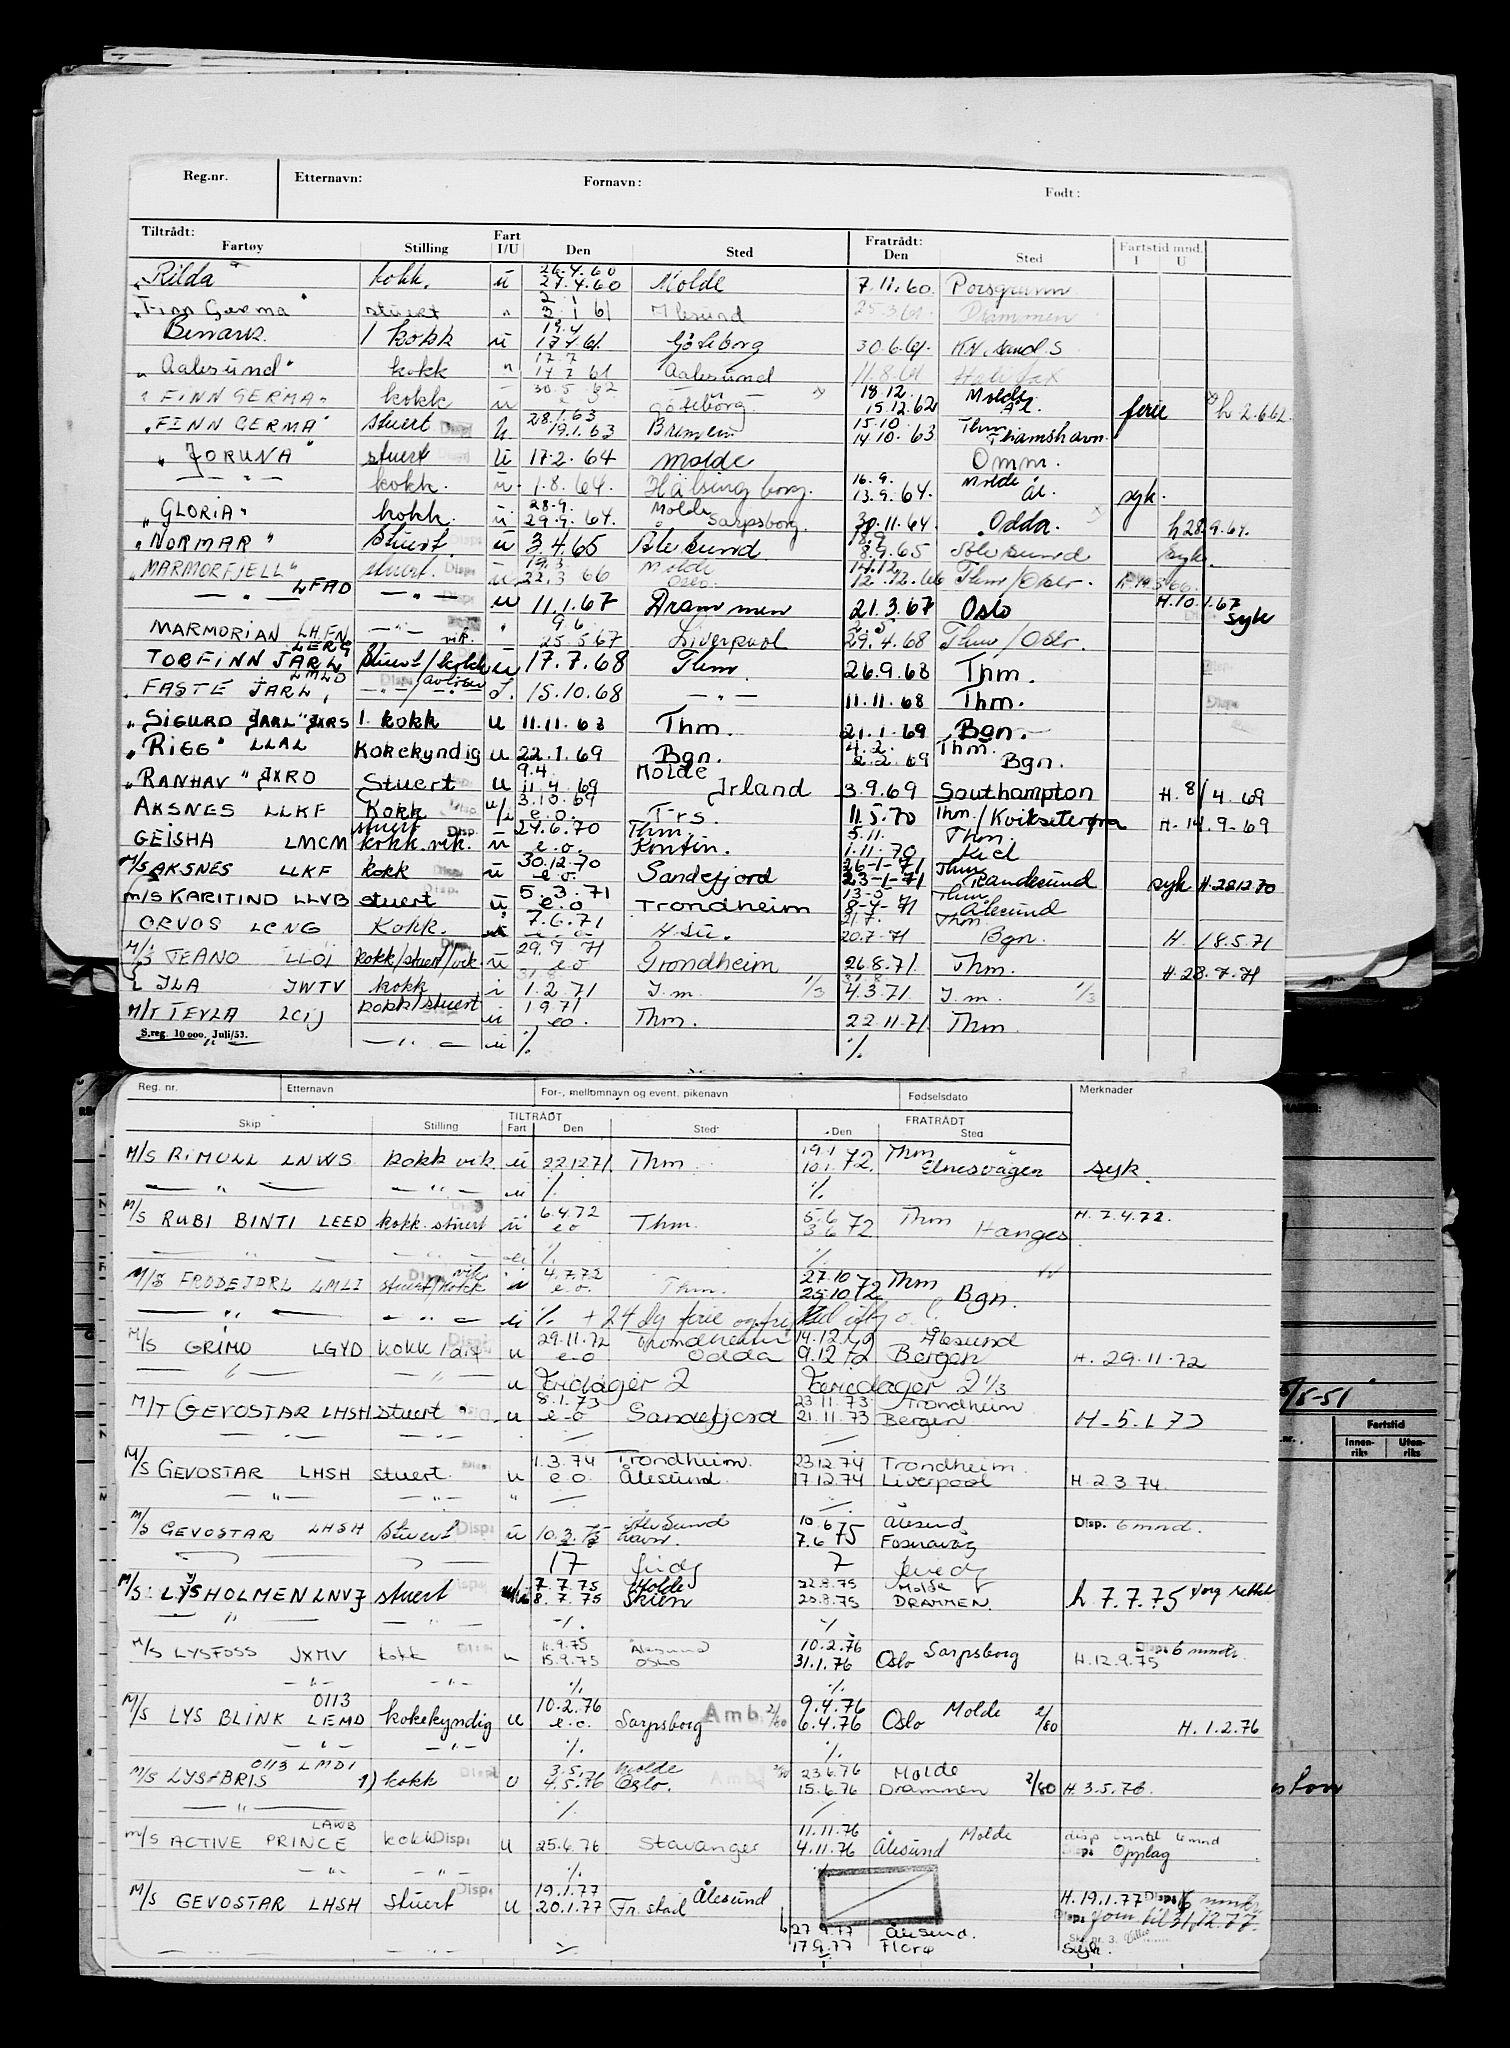 Reg.nr. Etternavn: Fornavn: Født:
Tiltrådt: Fartøy Stilling Fart I/U Den Sted Fratrådt: Den Sted Fartstid mnd. I U
"Rilda" kokk. u 26.4.60 27.4.60 Molde 7.11.60. Porsgrunn
"Finn Germa" stuert " 2.1 3.1 61 Ålesund 25.3.61. Drammen
Benark 1 kokk u 19.4 17.4.61. Göteborg 30.6.61. Kr. sand S
"Aalesund" kokk " 17.7 17.7 61 Aalesund 11.8.61 Halifax
"FINN GERMA" kokk u 30.5.62 Göteborg 18.12. 15.12.62 Molde Ål. ferie h 2.6.62.
"FINN GERMA" stuert u 28.1.63 19.1.63 Bremen 15.10 14.10.63 Thm Thamshavn.
"JORUNA" stuert u 17.2.64 Molde Omm.
— " — kokk. u 1.8.64. Hälsingborg. 16.9. 13.9.64. Molde Ål. syk.
"GLORIA" kokk. u 28.9. 29.9.64. Molde Sarpsborg. 30.11.64. Odda. h 28.9.64.
"NORMAR" Stuert. u 3.4.65 Ålesund 18.9 8.9.65 Ålesund syk.
"MARMORFJELL" stuert. Disp. u 19.3 22.3 66 Molde Oslo. 14.12. 12.12.66 Thm/Oslo.
— " — LFAD — " — u 11.1.67 Drammen 21.3.67 Oslo H.10.1.67 syk
MARMORIAN LHFN — " — vik. " 9.6 25.5.67 Liverpool 2.5 29.4.68 Thm/Oslo.
TORFINN JARL LERG stuert/kokk u 17.7.68 Thm. 26.9.68 Thm.
FASTE JARL, LMLD — " — /avløser I. 15.10.68 — " — 11.11.68 Thm.
"SIGURD JARL" JXRS 1. kokk u 11.11.68 Thm. 21.1.69 Bgn.
"RIGG" LLAL Kokekyndig u 22.1.69 Bgn. 4.2. 2.2.69 Thm. Bgn.
"RANHAV" JXRO Stuert u 9.4. 11.4.69 Molde Irland 3.9.69 Southampton H. 8/4.69
AKSNES LLKF Kokk u/i 3.10.69 e.o. Trs. 11.5.70 Thm./Kviksetergra H. 14.9.69
GEISHA LMCM stuert kokk. vik. Disp. u 24.6.70 e.o. Thm. Kontin. 5.11. 1.11.70 Thm. Kiel
M/S AKSNES LLKF kokk u 30.12.70 e.o. Sandefjord 26-1-71 23-1-71 Thm Randesund syk H.28.12.70
M/S KARITIND LLVB stuert Disp. u 5.3.71 e.o Trondheim 13-5- 8-4-71 Thm. Ålesund
ORVOS LCNG Kokk. u 7.6.71 H.Su. 21.7. 20.7.71 Thm Bgn. H. 18.5.71
M/S TEANO LLOI kokk/stuert/vik u 29.7 71 e.o Trondheim 26.8.71. Thm. H.28.7.71
ILA JWTV kokk i 1.2.71 I.m. 1/3 4.3.71 I.m. 1/3
M/T TEVLA LCIJ kokk/stuert u 1 9 71 e.o. Thm. 22.11.71 Thm.
S.reg. 10 000, Juli/53. — " — u % %
Reg. nr. Etternavn For-, mellomnavn og event. pikenavn Fødselsdato Merknader
TILTRÅDT FRATRÅDT
Skip Stilling Fart Den Sted Den Sted
M/S RIMULL LNWS kokk vik. u 22.12.71 Thm. 19.1 10.1.72 Thm Elnesvågen syk.
— " — — " — u % %
M/S RUBI BINTI LEED kokk. stuert u 6.4.72 e.o Thm. 5.6 3.6 72 Thm Hanges H. 7.4.72.
— " — — " — u % %
M/S FRODEJARL LMLI stuert/kokk vik u 4.7.72 e.o. Thm. 27.10 25.10 72 Thm Bgn.
— " — — " — u % + 24 dg ferie og
M/S GRIMO LGYD kokk u 29.11.72 e.o Trondheim Odda 14.12.72 9.12.72 Ålesund Bergen H. 29.11.72
— " — — " — u Fridager 2 Feriedager 2 1/3
M/T GEVOSTAR LHSH stuert u 8.1.73 e-o Sandefjord 23.11.73 21.11.73 Trondheim Bergen H-5.1.73
— " — — " —
M/S GEVOSTAR LHSH stuert. u 1.3.74 e.o. Trondheim. Ålesund. 23.12.74 17.12.74 Trondheim. Liverpool H.2.3.74.
— " — — " — "
M/S GEVOSTAR LHSH stuert Disp. u 10.3.75 Ålesund havn. 10.6 7.6 75 Ålesund Fosnavåg Disp. 6 mnd.
17 7
M/S: LYSHOLMEN LNVJ stuert 7.7.75 8.7.75 Molde Skien 22.8.75 20.8.75 Molde DRAMMEN. h 7.7.75
— " — — " — % %
M/S LYSFOSS JXMV kokk u 11.9.75 15.9.75 Ålesund OSLO 10.2.76 31.1.76 Oslo Sarpsborg H.12.9.75 Disp. 6 mndr.
— " — — " — %
M/S LYS BLINK 0113 LEMD kokekyndig u 10.2.76 e.o. Sarpsborg Amb. 2/80 9.4.76 6.4.76 Oslo Molde 2/80 H. 1.2.76
— " — — " — % %
M/S LYSBRIS 0113 LMDI 1) kokk Disp. u 3.5. 4.5.76 Molde Oslo. Amb. 23.6.76 15.6.76 Molde Drammen 2/80 H. 3.5.76.
— " — % %
M/S ACTIVE PRINCE LAWB kokk Disp. u 25.6.76 Stavanger 11.11.76 4.11.76 Ålesund Molde disp inntil 6 mnd Opplag
— " — — " — %
M/S GEVOSTAR LHSH stuert Disp. u 19.1.77 20.1.77 Fr.stad Ålesund H.19.1.77 Disp. 6 mndr.
Disp. til 31.12.77.
27.9.77 Ålesund.
17.9.77 Florø syk.
— " — — " — %
5/5-51
Fartstid
Innenriks Utenriks